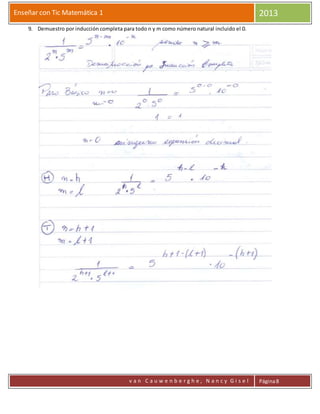 Enseñar con Tic Matemática 1 2013
9. Demuestro por inducción completa para todo n y m como número natural incluido el 0.
1/(2^n · 5^m) = 5^(n-m) · 10^(-n) siendo n ≥ m
Demostración por Inducción Completa
Paso Básico n=0 1/(2^0 · 5^0) = 5^(0-0) · 10^(-0)
m=0
1 = 1
n=0 expresión decimal.
(H) n=h 1/(2^h · 5^l) = 5^(h-l) · 10^(-h)
m=l
(T) n=h+1
m=l+1
1/(2^(h+1) · 5^(l+1)) = 5^(h+1-(l+1)) · 10^(-(h+1))
van Cauwenberghe, Nancy Gisel Página 8